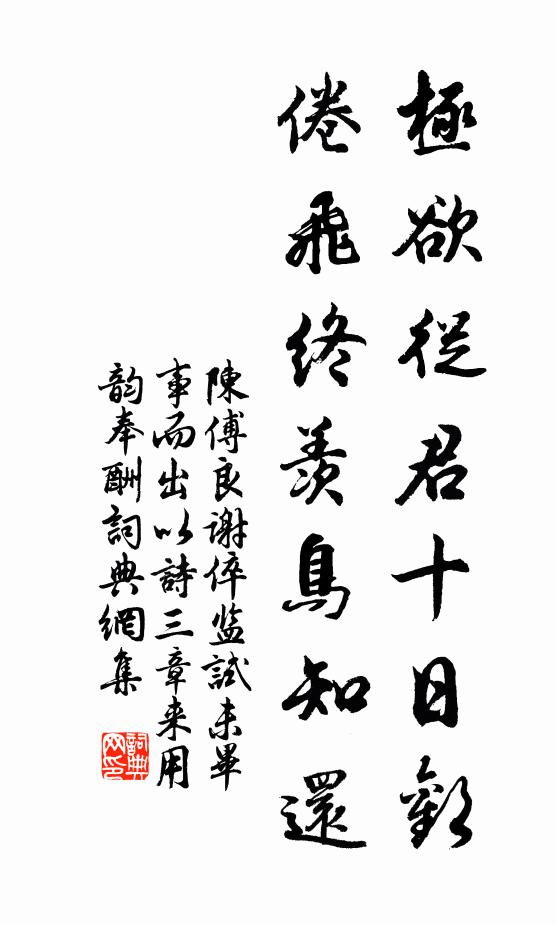 極欲從君十日歡
倦飛終羨鳥知還
陳傅良謝倅監試未畢
事而出以詩三章来用
韵奉酬詞典網集
詞典
网印